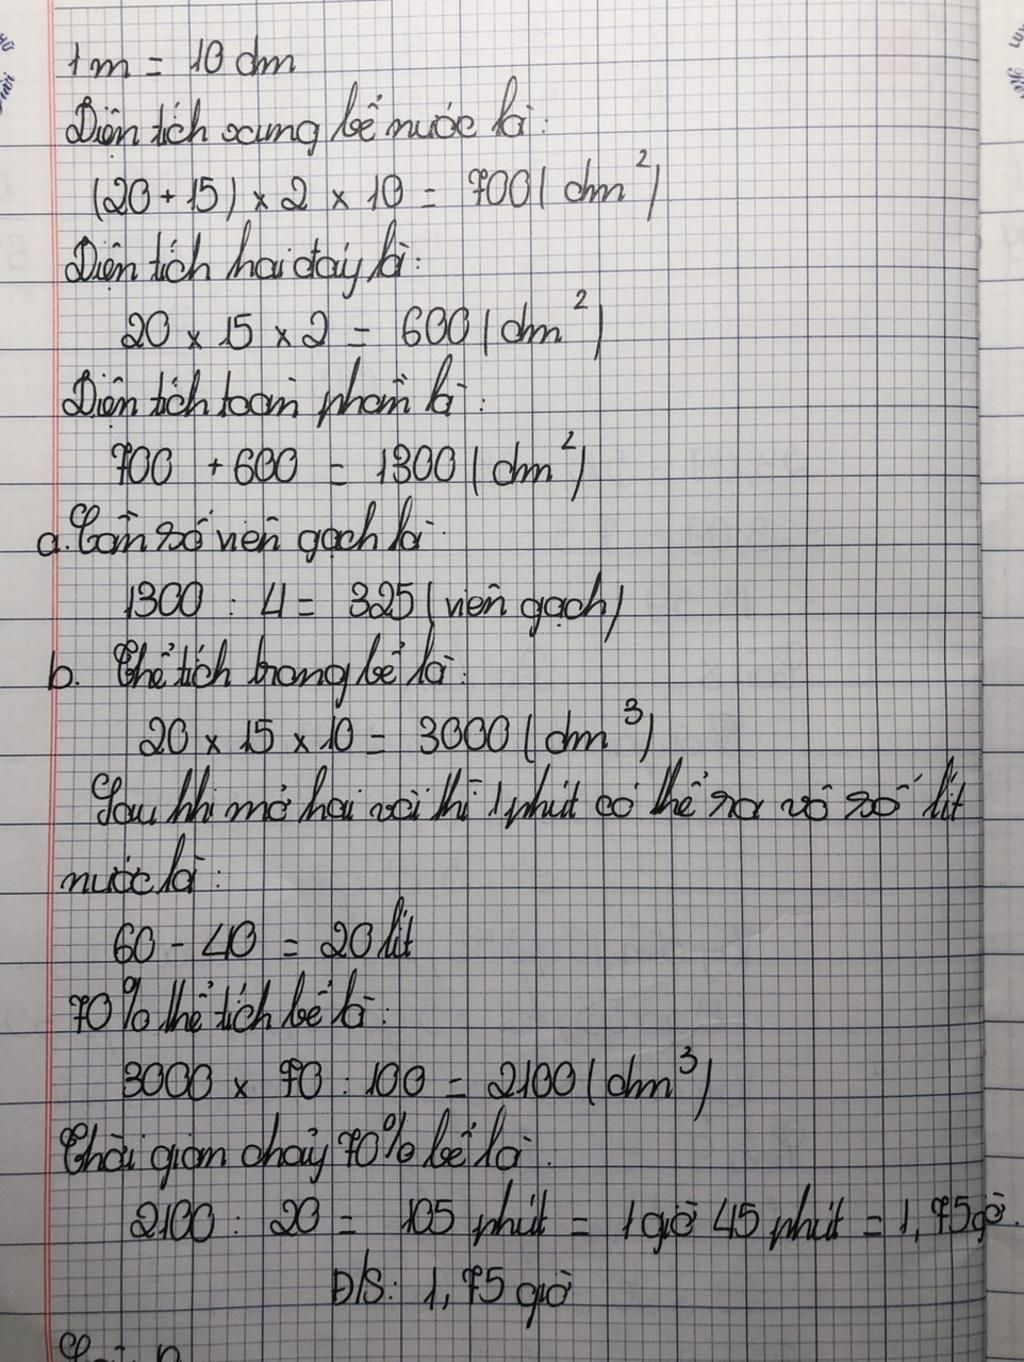 1m = 10 dm
Diện tích xung bể nước là:
(20 + 15) × 2 × 10 = 700 (dm²)
Diện tích hai đáy là:
20 × 15 × 2 = 600 (dm²)
Diện tích toàn phần là:
700 + 600 = 1300 (dm²)
a. Cần số viên gạch là:
1300 : 4 = 325 (viên gạch)
b. Thể tích trong bể là:
20 × 15 × 10 = 3000 (dm³)
Sau khi mở hai vòi thì 1 phút có thể ra vô số lít
nước là:
60 - 40 = 20 lít
70% thể tích bể là:
3000 × 70 : 100 = 2100 (dm³)
Thời gian chảy 70% bể là:
2100 : 20 = 105 phút = 1 giờ 45 phút = 1,75 giờ.
Đ/S: 1,75 giờ